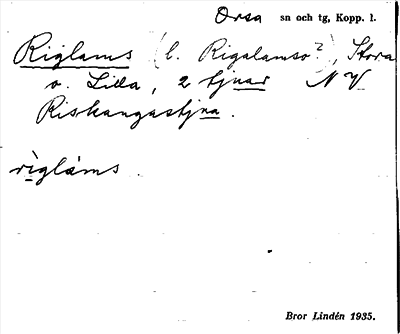 Orsa sn och tg, Kopp. l.
Riglams (l. Rigalamso?), Stora
o. Lilla, 2 tjnar NV
Riskangastjna.
rìgláms.
Bror Lindén 1935.